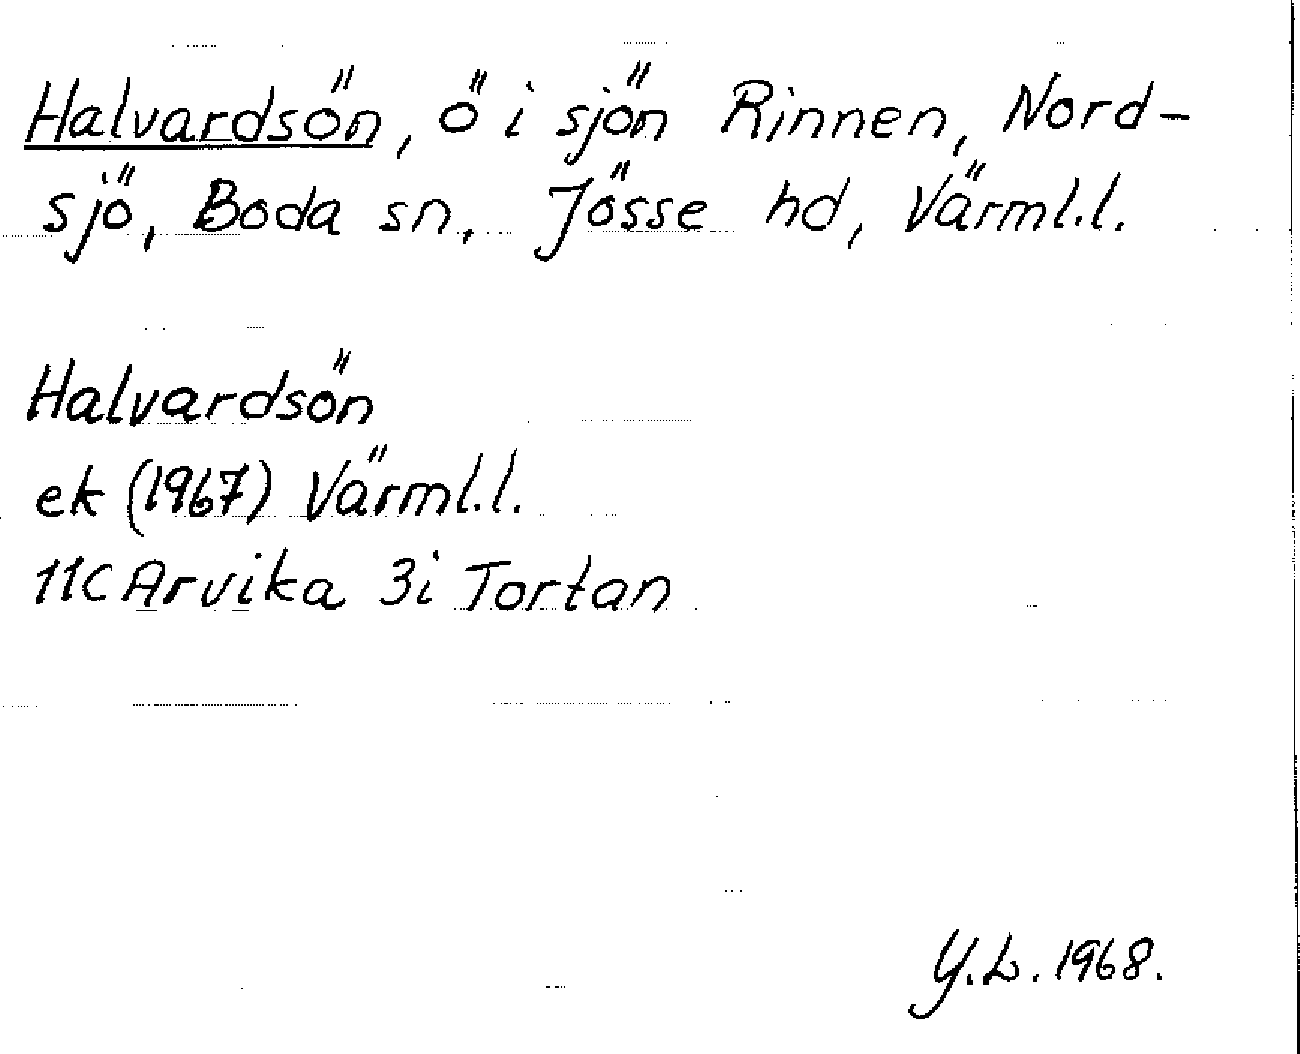 Halvardsön, ö i sjön Rinnen, Nord-
sjö, Boda sn, Jösse hd, Värml.l.
Halvardsön
ek (1967) Värml.l.
11C Arvika 3i Tortan
Y.L. 1968.